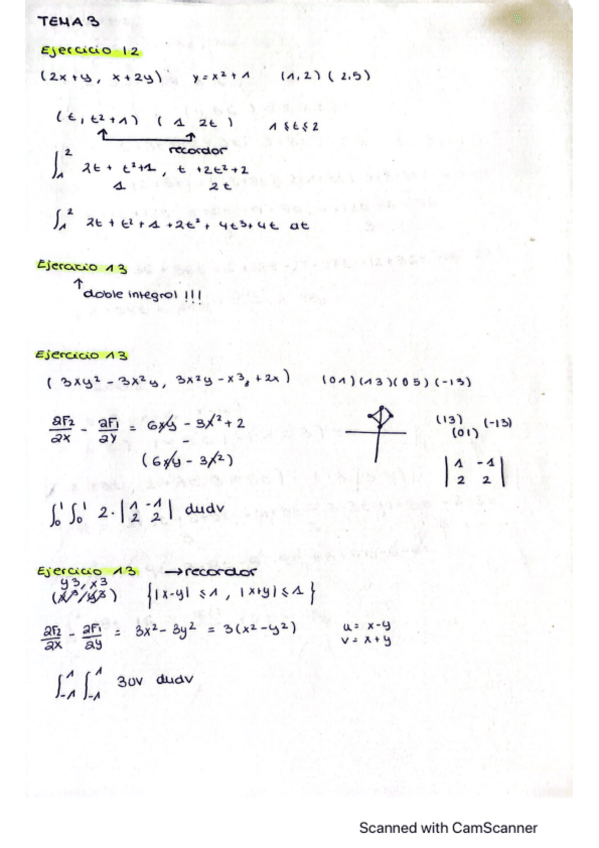 TEMA 3
Ejercicio 12
(2x+y, x+2y) y=x²+1 (1,2) (2,5)
(t, t²+1) (1 2t) 1≤t≤2
recordar
∫₁² 2t + t²+1, t +2t²+2
1 2t
∫₁² 2t + t² + 1 + 2t² + 4t³ + 4t dt
Ejercicio 13
↑
doble integral !!!
Ejercicio 13
(3xy² - 3x²y, 3x²y - x³ + 2x) (01) (13) (05) (-13)
∂F2/∂x - ∂F1/∂y = 6xy - 3x² + 2
-
(6xy - 3x²)
(13) (-13)
(01)
|1 -1|
|2 2|
∫₀¹ ∫₀¹ 2·|1 -1| dudv
|2 2|
Ejercicio 13 → recordar
y3, x3
(x³/y³) {|x-y| ≤1, |x+y| ≤1}
∂F2/∂x - ∂F1/∂y = 3x² - 3y² = 3(x²-y²) u = x-y
v = x+y
∫₋₁¹ ∫₋₁¹ 3uv dudv
Scanned with CamScanner